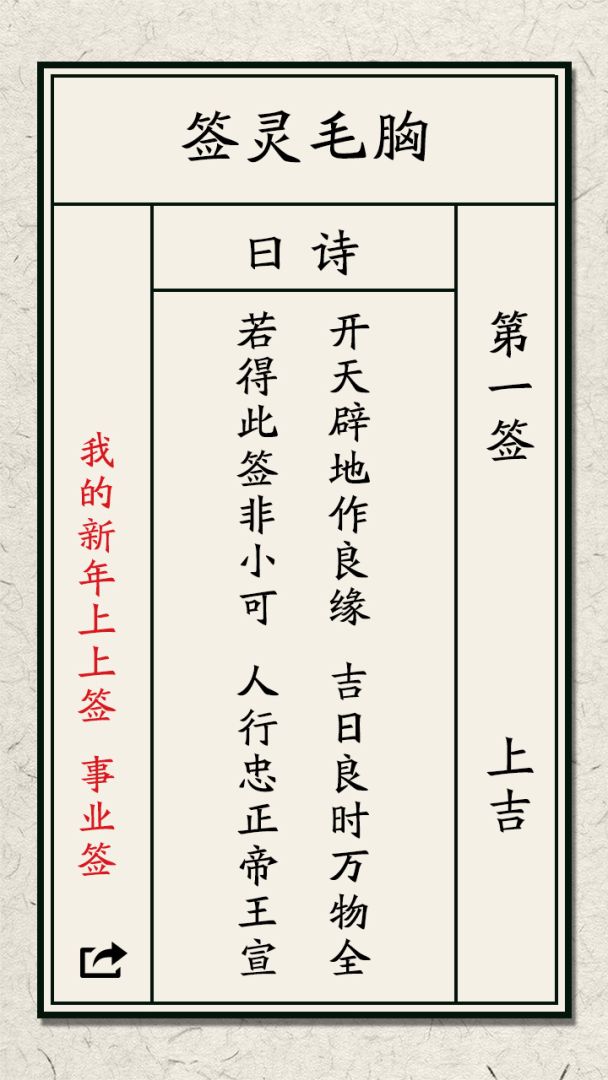 胸毛灵签
第一签 上吉
诗曰
开天辟地作良缘 吉日良时万物全
若得此签非小可 人行忠正帝王宣
我的新年上上签 事业签